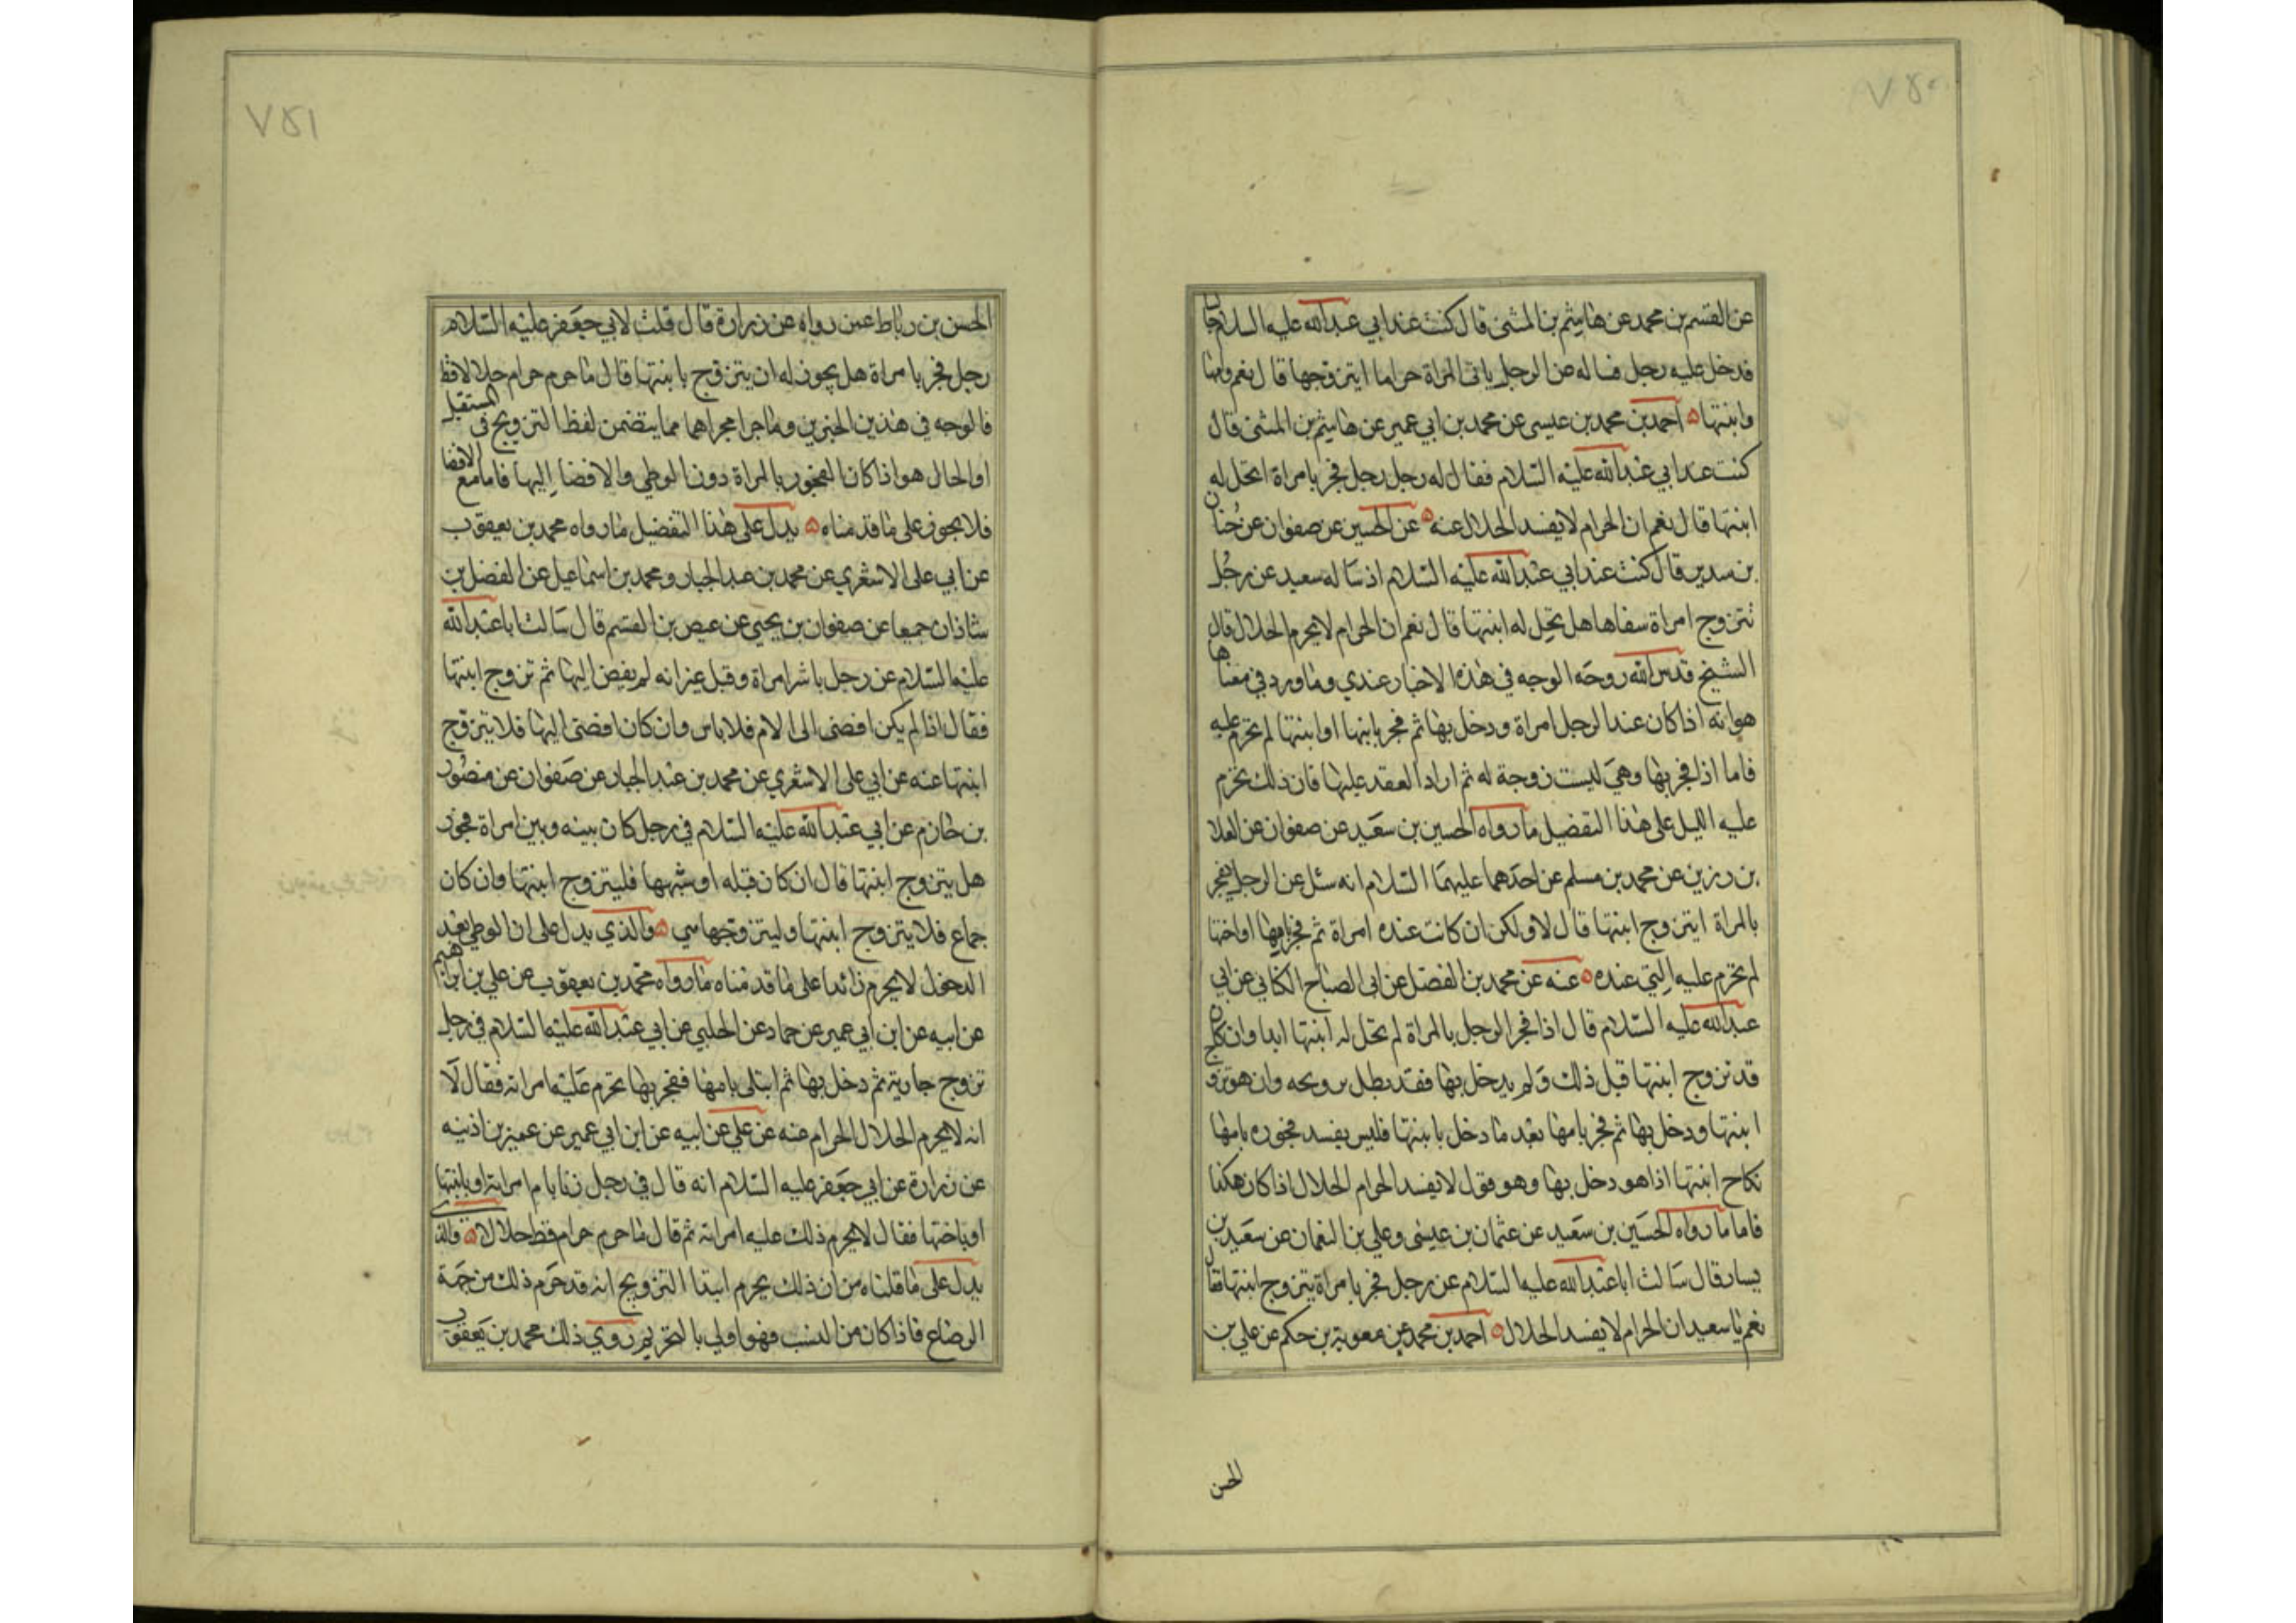 ٧٥٠
عن القسم بن محمد عن هاشم بن المثنى قال كنت عند ابي عبدالله عليه السلام جالسا
فدخل عليه رجل فساله عن الرجل ياتى المراة حراما ايتزوجها قال نعم وامها
وابنتها احمد بن محمد بن عيسى عن محمد بن ابي عمير عن هاشم بن المثنى قال
كنت عند ابي عبدالله عليه السلام فقال له رجل رجل فجر بامراة اتحل له
ابنتها قال نعم ان الحرام لا يفسد الحلال عنه عن الحسين عن صفوان عن حنان
بن سدير قال كنت عند ابي عبدالله عليه السلام اذ ساله سعيد عن رجل
تتزوج امراة سفاها هل تحل له ابنتها قال نعم ان الحرام لا يحرم الحلال قال
الشيخ قدس الله روحه الوجه في هذه الاخبار عندي وما ورد في معناها
هو انه اذا كان عند الرجل امراة ودخل بها ثم فجر بامها او ابنتها لم تحرم عليه
فاما اذا فجر بها وهي ليست زوجة له ثم اراد العقد عليها فان ذلك يحرم
عليه الليل على هذا التفضيل ما رواه الحسين بن سعيد عن صفوان عن العلا
بن رزين عن محمد بن مسلم عن احدهما عليهما السلام انه سئل عن الرجل يفجر
بالمراة ايتزوج ابنتها قال لا ولكن ان كانت عنده امراة ثم فجر بامها او اختها
لم تحرم عليه التي عنده عنه عن محمد بن الفضل عن ابى الصباح الكناني عن ابي
عبدالله عليه السلام قال اذا فجر الرجل بالمراة لم تحل له ابنتها ابدا وان كان
قد تزوج ابنتها قبل ذلك ولم يدخل بها فقد بطل تزويجه وان هو تزوج
ابنتها ودخل بها ثم فجر بامها بعد ما دخل بابنتها فليس يفسد فجوره بامها
نكاح ابنتها اذا هو دخل بها وهو قول لا يفسد الحرام الحلال اذا كان هكذا
فاما ما رواه الحسين بن سعيد عن عثمان بن عيسى وعلي بن النعمان عن سعيد بن
يسار قال سالت ابا عبدالله عليه السلام عن رجل فجر بامراة يتزوج ابنتها فقال
نعم يا سعيد ان الحرام لا يفسد الحلال احمد بن محمد عن معوية بن حكم عن علي بن
الحسن
٧٥١
الحسن بن رباط عمن رواه عن زرارة قال قلت لابي جعفر عليه السلام
رجل فجر بامراة هل يجوز له ان يتزوج بابنتها قال ما حرم حرام حلالا قط
فالوجه في هذين الخبرين وما جرا مجراهما مما يتضمن لفظ التزويج فى المستقبل
او الحال هو اذا كان الفجور بالمراة دون الوطي والافضا اليها فاما مع الافضا
فلا يجوز على ما قدمناه يدل على هذا التفضيل ما رواه محمد بن يعقوب
عن ابي على الاشعري عن محمد بن عبد الجبار ومحمد بن اسماعيل عن الفضل بن
شاذان جميعا عن صفوان بن يحيى عن عيص بن القسم قال سالت ابا عبدالله
عليه السلام عن رجل باشر امراة وقبل غير انه لم يفض اليها ثم تزوج ابنتها
فقال اذا لم يكن افضى الى الام فلا باس وان كان افضى اليها فلا يتزوج
ابنتها عنه عن ابي على الاشعري عن محمد بن عبد الجبار عن صفوان عن منصور
بن حازم عن ابي عبدالله عليه السلام في رجل كان بينه وبين امراة فجور
هل يتزوج ابنتها قال ان كان قبله او شبهها فليتزوج ابنتها وان كان
جماع فلا يتزوج ابنتها وليتزوجها هي والذي يدل على ان الوطي بعد
الدخول لا يحرم زائدا على ما قدمناه ما رواه محمد بن يعقوب عن علي بن ابراهيم
عن ابيه عن ابن ابي عمير عن حماد عن الحلبي عن ابي عبدالله عليه السلام في رجل
تزوج جارية ثم دخل بها ثم ابتلى بامها ففجر بها تحرم عليه امراته فقال لا
انه لا يحرم الحلال الحرام عنه عن علي عن ابيه عن ابن ابي عمير عن عمير بن اذينه
عن زرارة عن ابي جعفر عليه السلام انه قال في رجل زنا بام امراته او بابنتها
او باختها فقال لا يحرم ذلك عليه امراته ثم قال ما حرم حرام قط حلالا والذى
يدل على ما قلناه من ان ذلك يحرم ابتدا التزويج انه قد حرم ذلك من جهة
الرضاع فاذا كان من النسب فهو اولى بالتحريم روي ذلك محمد بن يعقوب